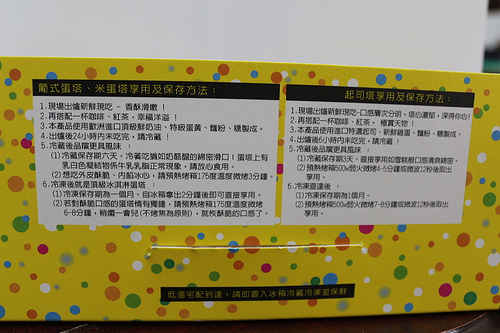 葡式蛋塔、米蛋塔享用及保存方法：
1.現場出爐新鮮現吃 - 香酥滑嫩！
2.再搭配一杯咖啡、紅茶，幸福洋溢！
3.本產品使用歐洲進口頂級鮮奶油、特級蛋黃、麵粉、糖製成。
4.出爐後24小時內未吃完，請冷藏！
5.冷藏後品嚐更具風味：
(1)冷藏保存期六天，冷藏吃猶如奶酪般的綿密滑口！蛋塔上有
乳白色凝結物係牛乳乳脂正常現象，請放心食用。
(2)想吃外皮酥脆、內餡冰心，請預熱烤箱175度溫度微烤3分鐘。
6.冷凍後就是頂級冰淇淋蛋塔：
(1)冷凍保存期為一個月，自冰箱拿出2分鐘後即可直接享用。
(2)若對酥脆口感的蛋塔情有獨鍾，請預熱烤箱175度溫度微烤
6-8分鐘，稍燜一會兒(不烤焦為原則)，就恢酥脆的口感了。
起司塔享用及保存方法：
1.現場出爐新鮮現吃-口感層次分明，甜心濃郁，深得你心！
2.再搭配一杯咖啡、紅茶，極賞天物！
3.本產品使用進口特濃起司、新鮮雞蛋、麵粉、糖製成。
4.出爐後5小時內未吃完，請冷藏！
5.冷藏後品嚐更具風味：
(1)冷藏保存期3天，直接享用如雪糕般口感清爽綿密。
(2)預熱烤箱500w弱火微烤4-5分鐘或微波12秒後取出
享用。
6.冷凍直達後：
(1)冷凍保存期為1個月。
(2)預熱烤箱500w弱火微烤7-8分鐘或微波12秒後取出
享用。
低溫宅配到達，請即置入冰箱冷藏冷凍室保鮮